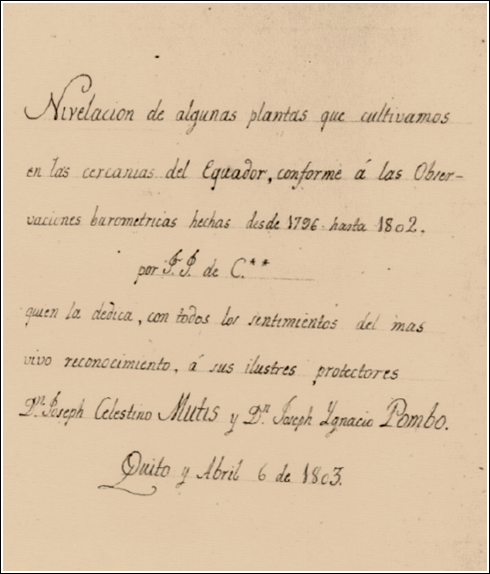 Nivelacion de algunas plantas que cultivamos
en las cercanias del Equador, conforme á las Obser-
vaciones barometricas hechas desde 1796 hasta 1802.
por F. J. de C.**
quien la dedica, con todos los sentimientos del mas
vivo reconocimiento, á sus ilustres protectores
Dn. Joseph Celestino Mutis y Dn. Joseph Ygnacio Pombo.
Quito y Abril 6 de 1803.